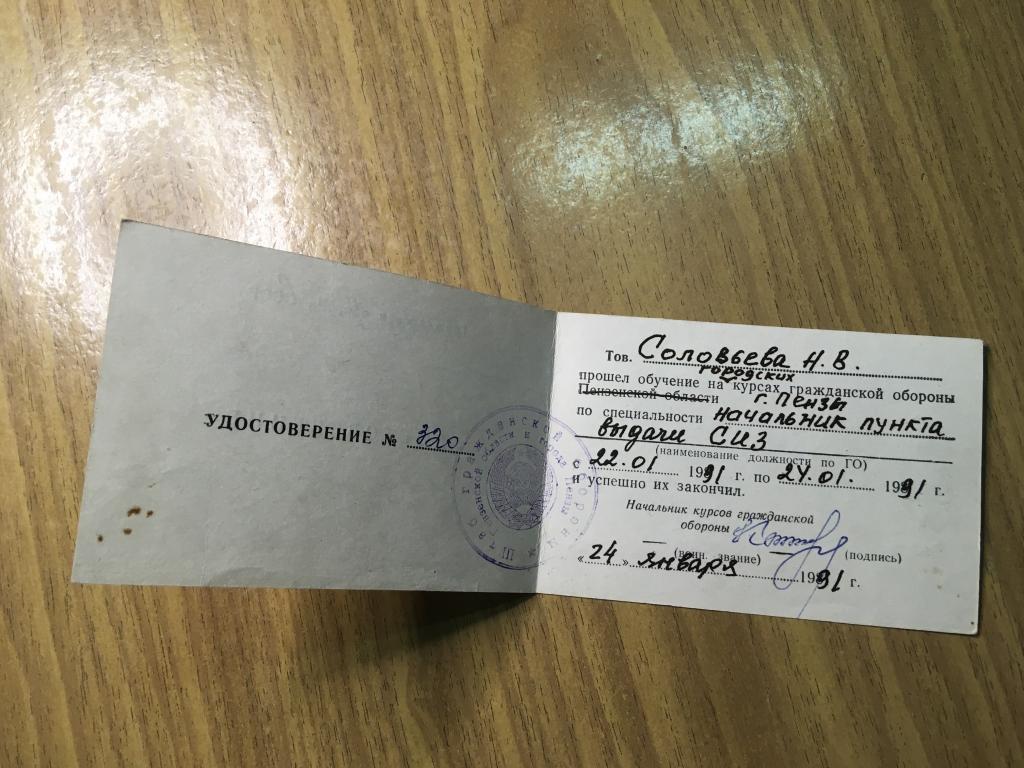 УДОСТОВЕРЕНИЕ № 320
Штаб гражданской обороны
Пензенской области и города Пензы
Тов. Соловьева Н.В.
прошел обучение на курсах гражданской обороны
городских
Пензенской области г. Пензы
по специальности начальник пункта
выдачи СИЗ
(наименование должности по ГО)
с 22.01 1991 г. по 24.01. 1991 г.
и успешно их закончил.
Начальник курсов гражданской
обороны
(воин. звание) (подпись)
«24» января 1991 г.